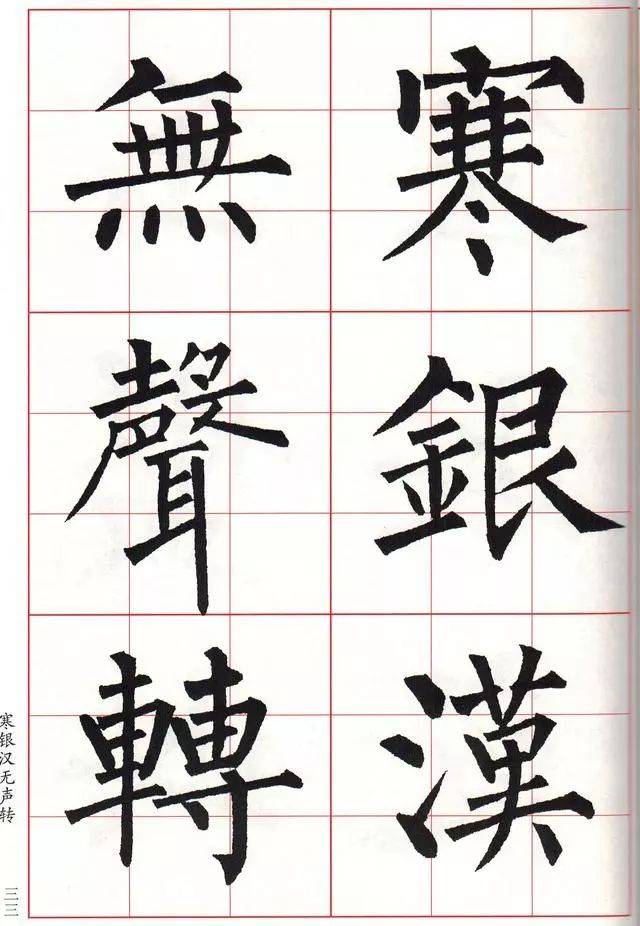 寒銀漢
無聲轉
寒银汉无声转
三二